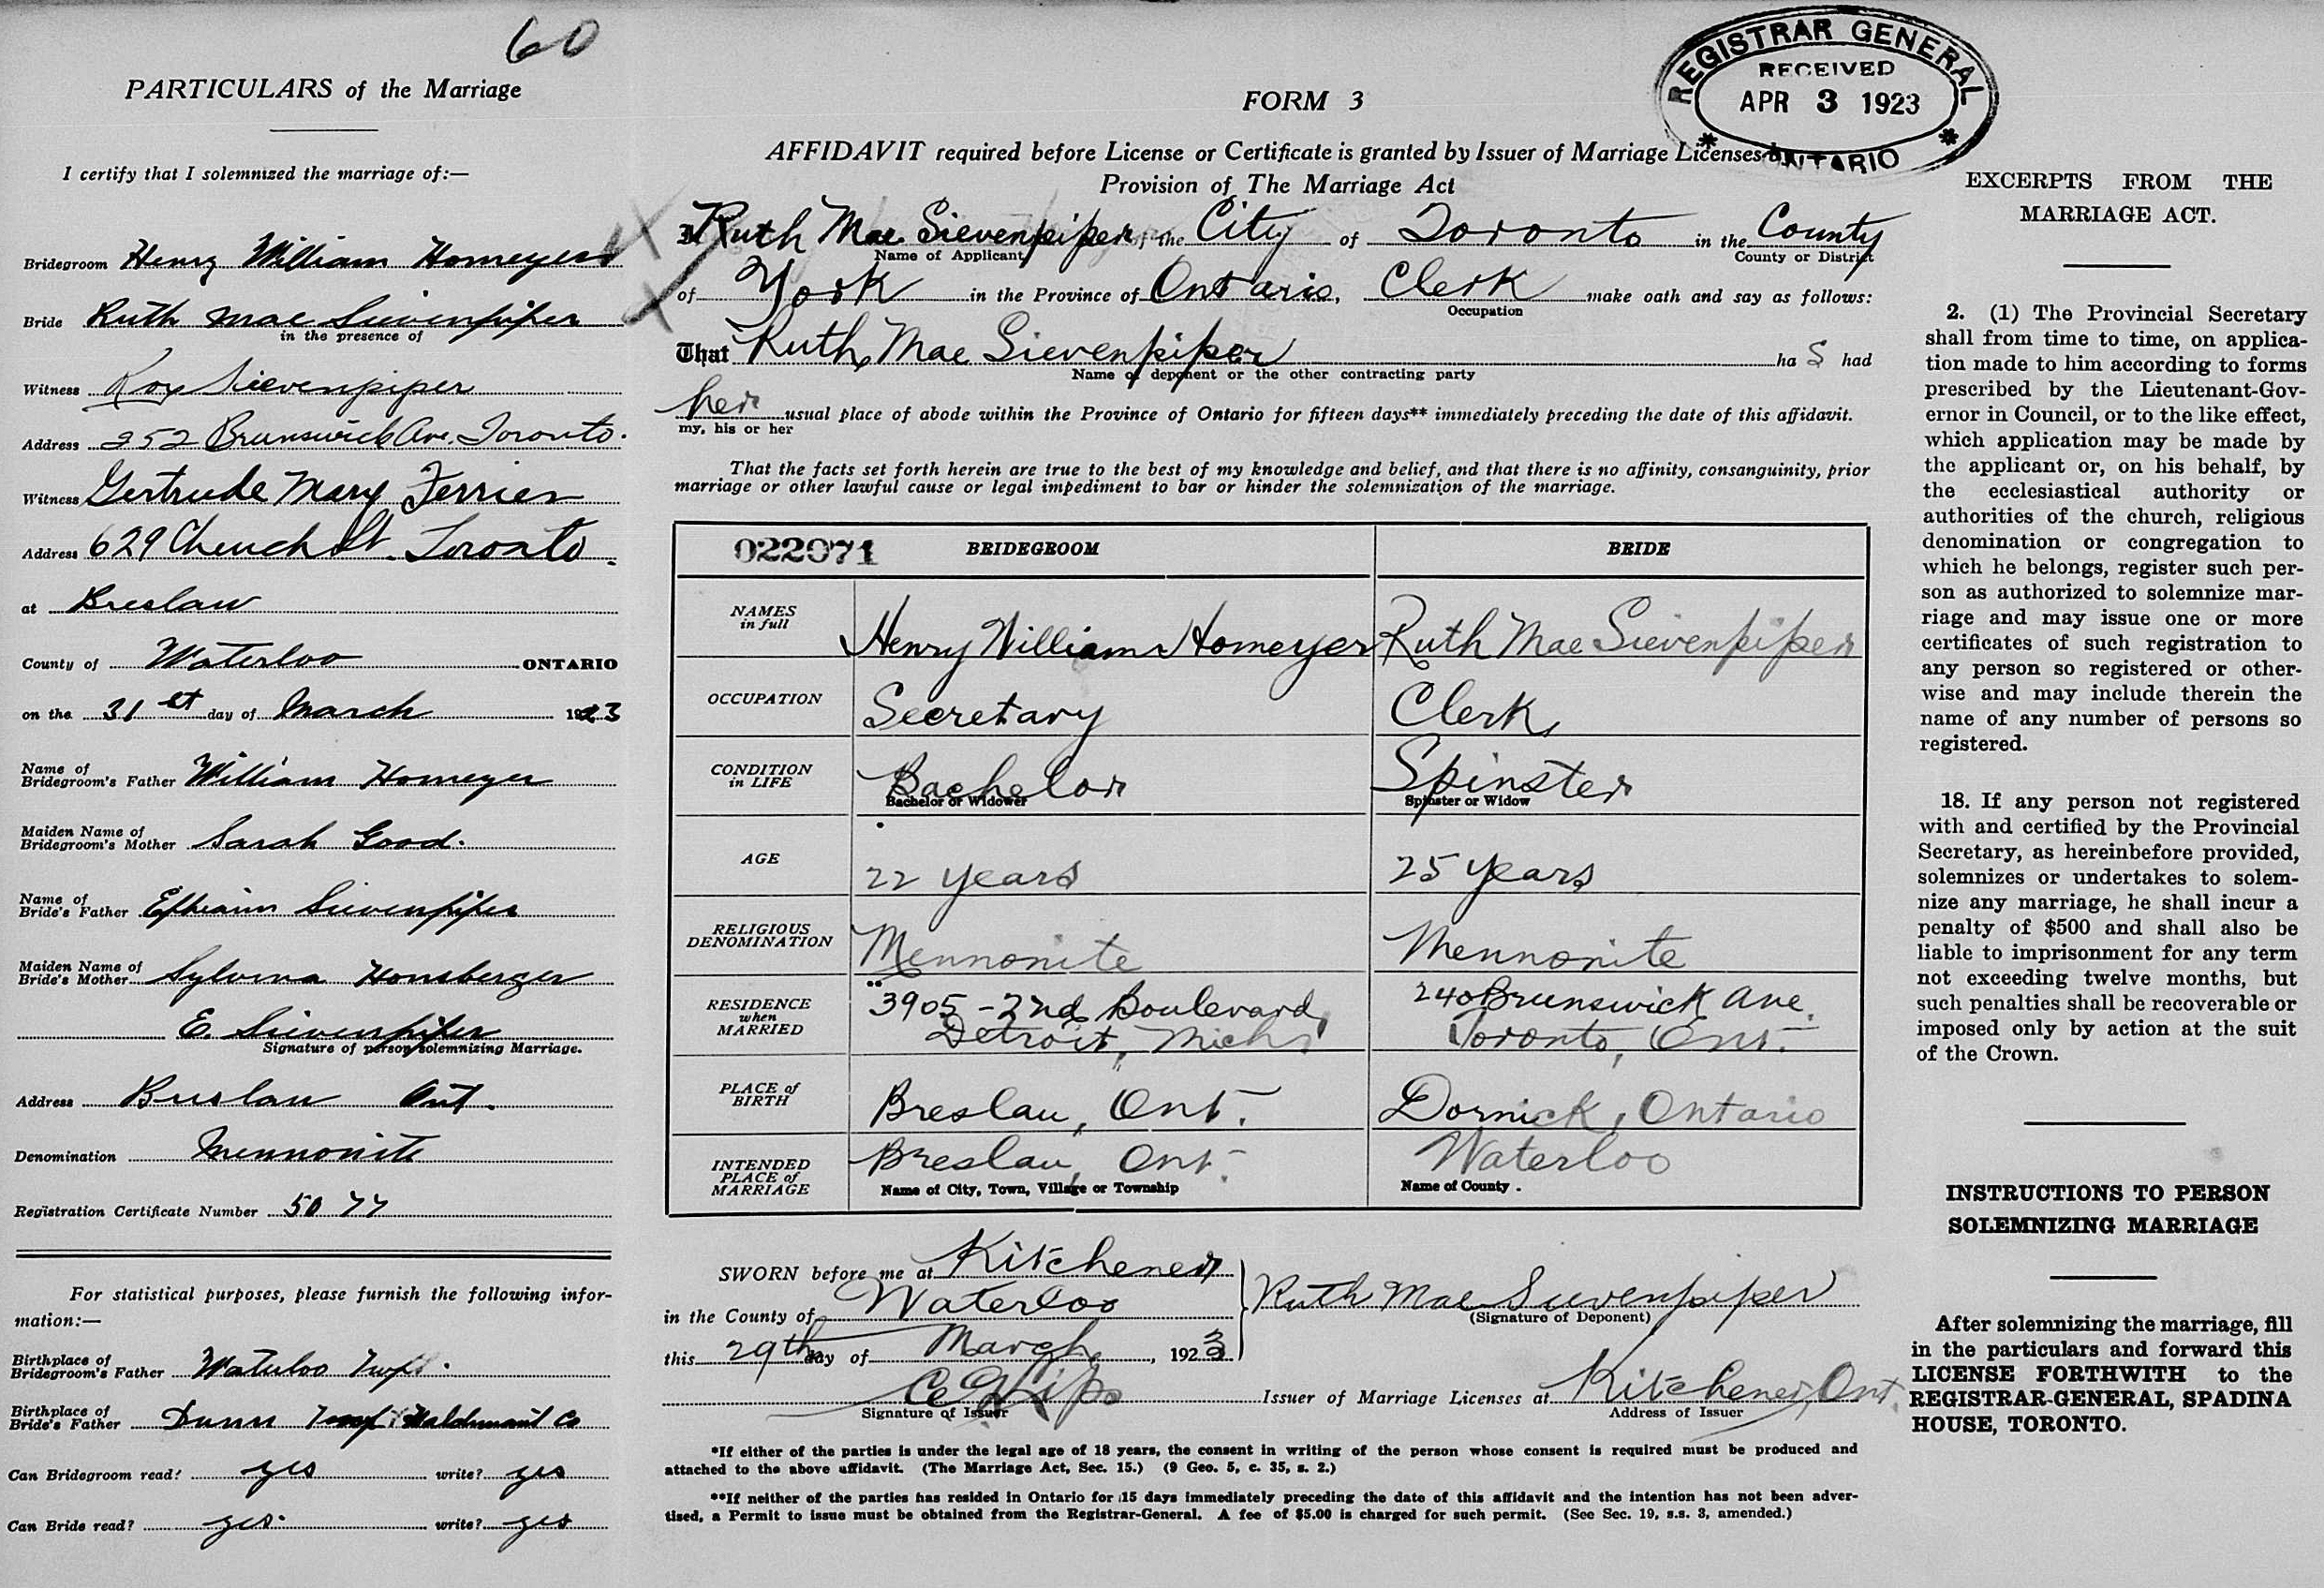 60
PARTICULARS of the Marriage
I certify that I solemnized the marriage of:—
Bridegroom Henry William Homeyer
Bride Ruth Mae Sievenpiper
in the presence of
Witness Roy Sievenpiper
Address 252 Brunswick Ave. Toronto.
Witness Gertrude Mary Ferrier
Address 629 Church St. Toronto.
at Breslaw
County of Waterloo ONTARIO
on the 31st day of March 1923
Name of
Bridegroom's Father William Homeyer
Maiden Name of
Bridegroom's Mother Sarah Good.
Name of
Bride's Father Ephraim Sievenpiper
Maiden Name of
Bride's Mother Sylvina Honsberger
E. Sievenpiper
Signature of person solemnizing Marriage.
Address Breslau Ont.
Denomination Mennonite
Registration Certificate Number 5077
For statistical purposes, please furnish the following infor-
mation:—
Birthplace of
Bridegroom's Father Waterloo Twp.
Birthplace of
Bride's Father Dunn Co
Can Bridegroom read? yes write? yes
Can Bride read? yes. write? yes
REGISTRAR GENERAL
RECEIVED
APR 3 1923
ONTARIO
FORM 3
AFFIDAVIT required before License or Certificate is granted by Issuer of Marriage Licenses
Provision of The Marriage Act
I Ruth Mae Sievenpiper of the City of Toronto in the County
Name of Applicant County or District
of York in the Province of Ontario, Clerk make oath and say as follows:
Occupation
That Ruth Mae Sievenpiper ha s had
Name of deponent or the other contracting party
her usual place of abode within the Province of Ontario for fifteen days** immediately preceding the date of this affidavit.
my, his or her
That the facts set forth herein are true to the best of my knowledge and belief, and that there is no affinity, consanguinity, prior
marriage or other lawful cause or legal impediment to bar or hinder the solemnization of the marriage.
022071 BRIDEGROOM BRIDE
NAMES
in full Henry William Homeyer Ruth Mae Sievenpiper
OCCUPATION Secretary Clerk
CONDITION
in LIFE Bachelor Spinster
Bachelor or Widower Spinster or Widow
AGE 22 years 25 years
RELIGIOUS
DENOMINATION Mennonite Mennonite
RESIDENCE 3905 - 2nd Boulevard 240 Brunswick Ave.
when
MARRIED Detroit, Mich. Toronto, Ont.
PLACE of
BIRTH Breslau, Ont. Dornick, Ontario
INTENDED
PLACE of
MARRIAGE Breslau, Ont. Waterloo
Name of City, Town, Village or Township Name of County.
SWORN before me at Kitchener
in the County of Waterloo
this 29th day of March, 1923
Ruth Mae Sievenpiper
(Signature of Deponent)
Issuer of Marriage Licenses at Kitchener, Ont.
Signature of Issuer Address of Issuer
*If either of the parties is under the legal age of 18 years, the consent in writing of the person whose consent is required must be produced and
attached to the above affidavit. (The Marriage Act, Sec. 15.) (9 Geo. 5, c. 35, s. 2.)
**If neither of the parties has resided in Ontario for 15 days immediately preceding the date of this affidavit and the intention has not been adver-
tised, a Permit to issue must be obtained from the Registrar-General. A fee of $5.00 is charged for such permit. (See Sec. 19, s.s. 3, amended.)
EXCERPTS FROM THE
MARRIAGE ACT.
2. (1) The Provincial Secretary
shall from time to time, on applica-
tion made to him according to forms
prescribed by the Lieutenant-Gov-
ernor in Council, or to the like effect,
which application may be made by
the applicant or, on his behalf, by
the ecclesiastical authority or
authorities of the church, religious
denomination or congregation to
which he belongs, register such per-
son as authorized to solemnize mar-
riage and may issue one or more
certificates of such registration to
any person so registered or other-
wise and may include therein the
name of any number of persons so
registered.
18. If any person not registered
with and certified by the Provincial
Secretary, as hereinbefore provided,
solemnizes or undertakes to solem-
nize any marriage, he shall incur a
penalty of $500 and shall also be
liable to imprisonment for any term
not exceeding twelve months, but
such penalties shall be recoverable or
imposed only by action at the suit
of the Crown.
INSTRUCTIONS TO PERSON
SOLEMNIZING MARRIAGE
After solemnizing the marriage, fill
in the particulars and forward this
LICENSE FORTHWITH to the
REGISTRAR-GENERAL, SPADINA
HOUSE, TORONTO.